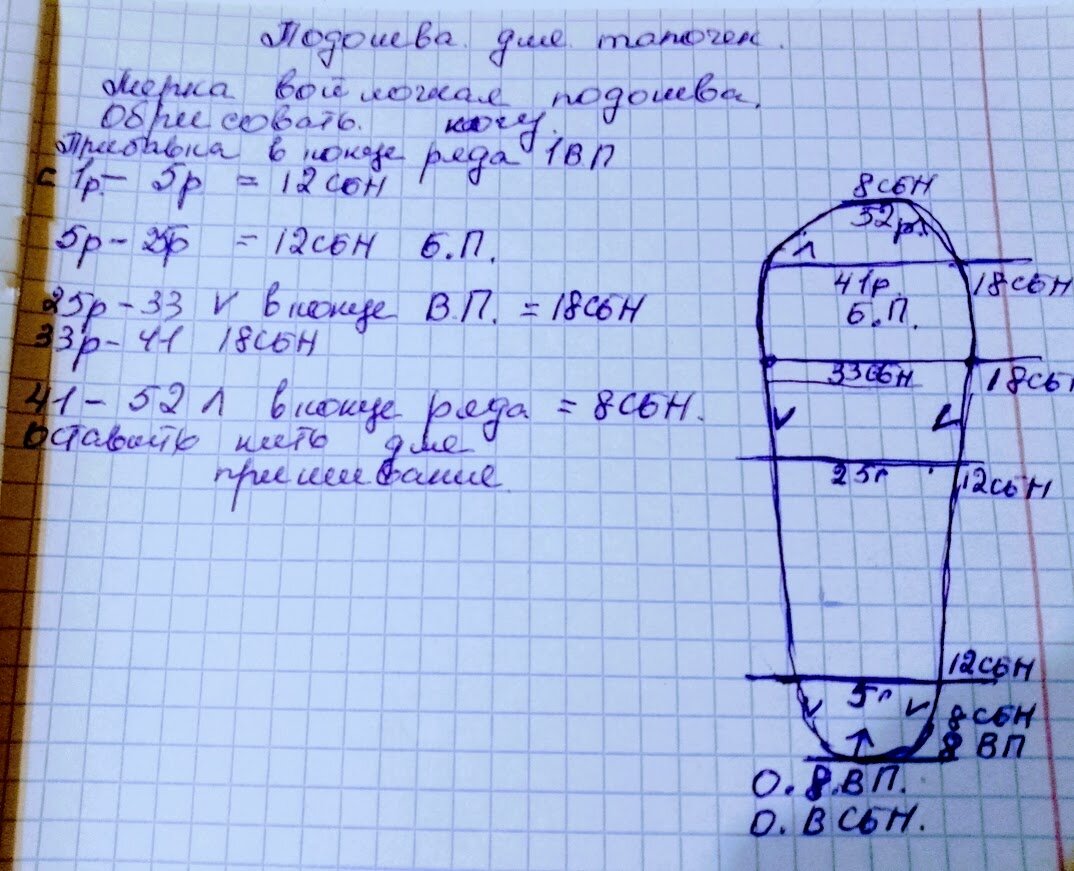 Подошева для тапочек.
Мерка войлочная подошева.
Обрисовать ногу.
Прибавка в конце ряда 1ВП
с 1р. - 5р = 12СБН
5р - 25р = 12СБН Б.П.
25р - 33 V в конце В.П. = 18СБН
33р - 41 18СБН
41 - 52 Λ в конце ряда = 8СБН.
Оставить нить для
пришивание.
8СБН
52р.
Λ
41р.
18СБН
Б.П.
33СБН
18СБН
V V
25р
12СБН
12СБН
5р
V V
8СБН
8 ВП
О. 8.ВП.
О. 8 СБН.